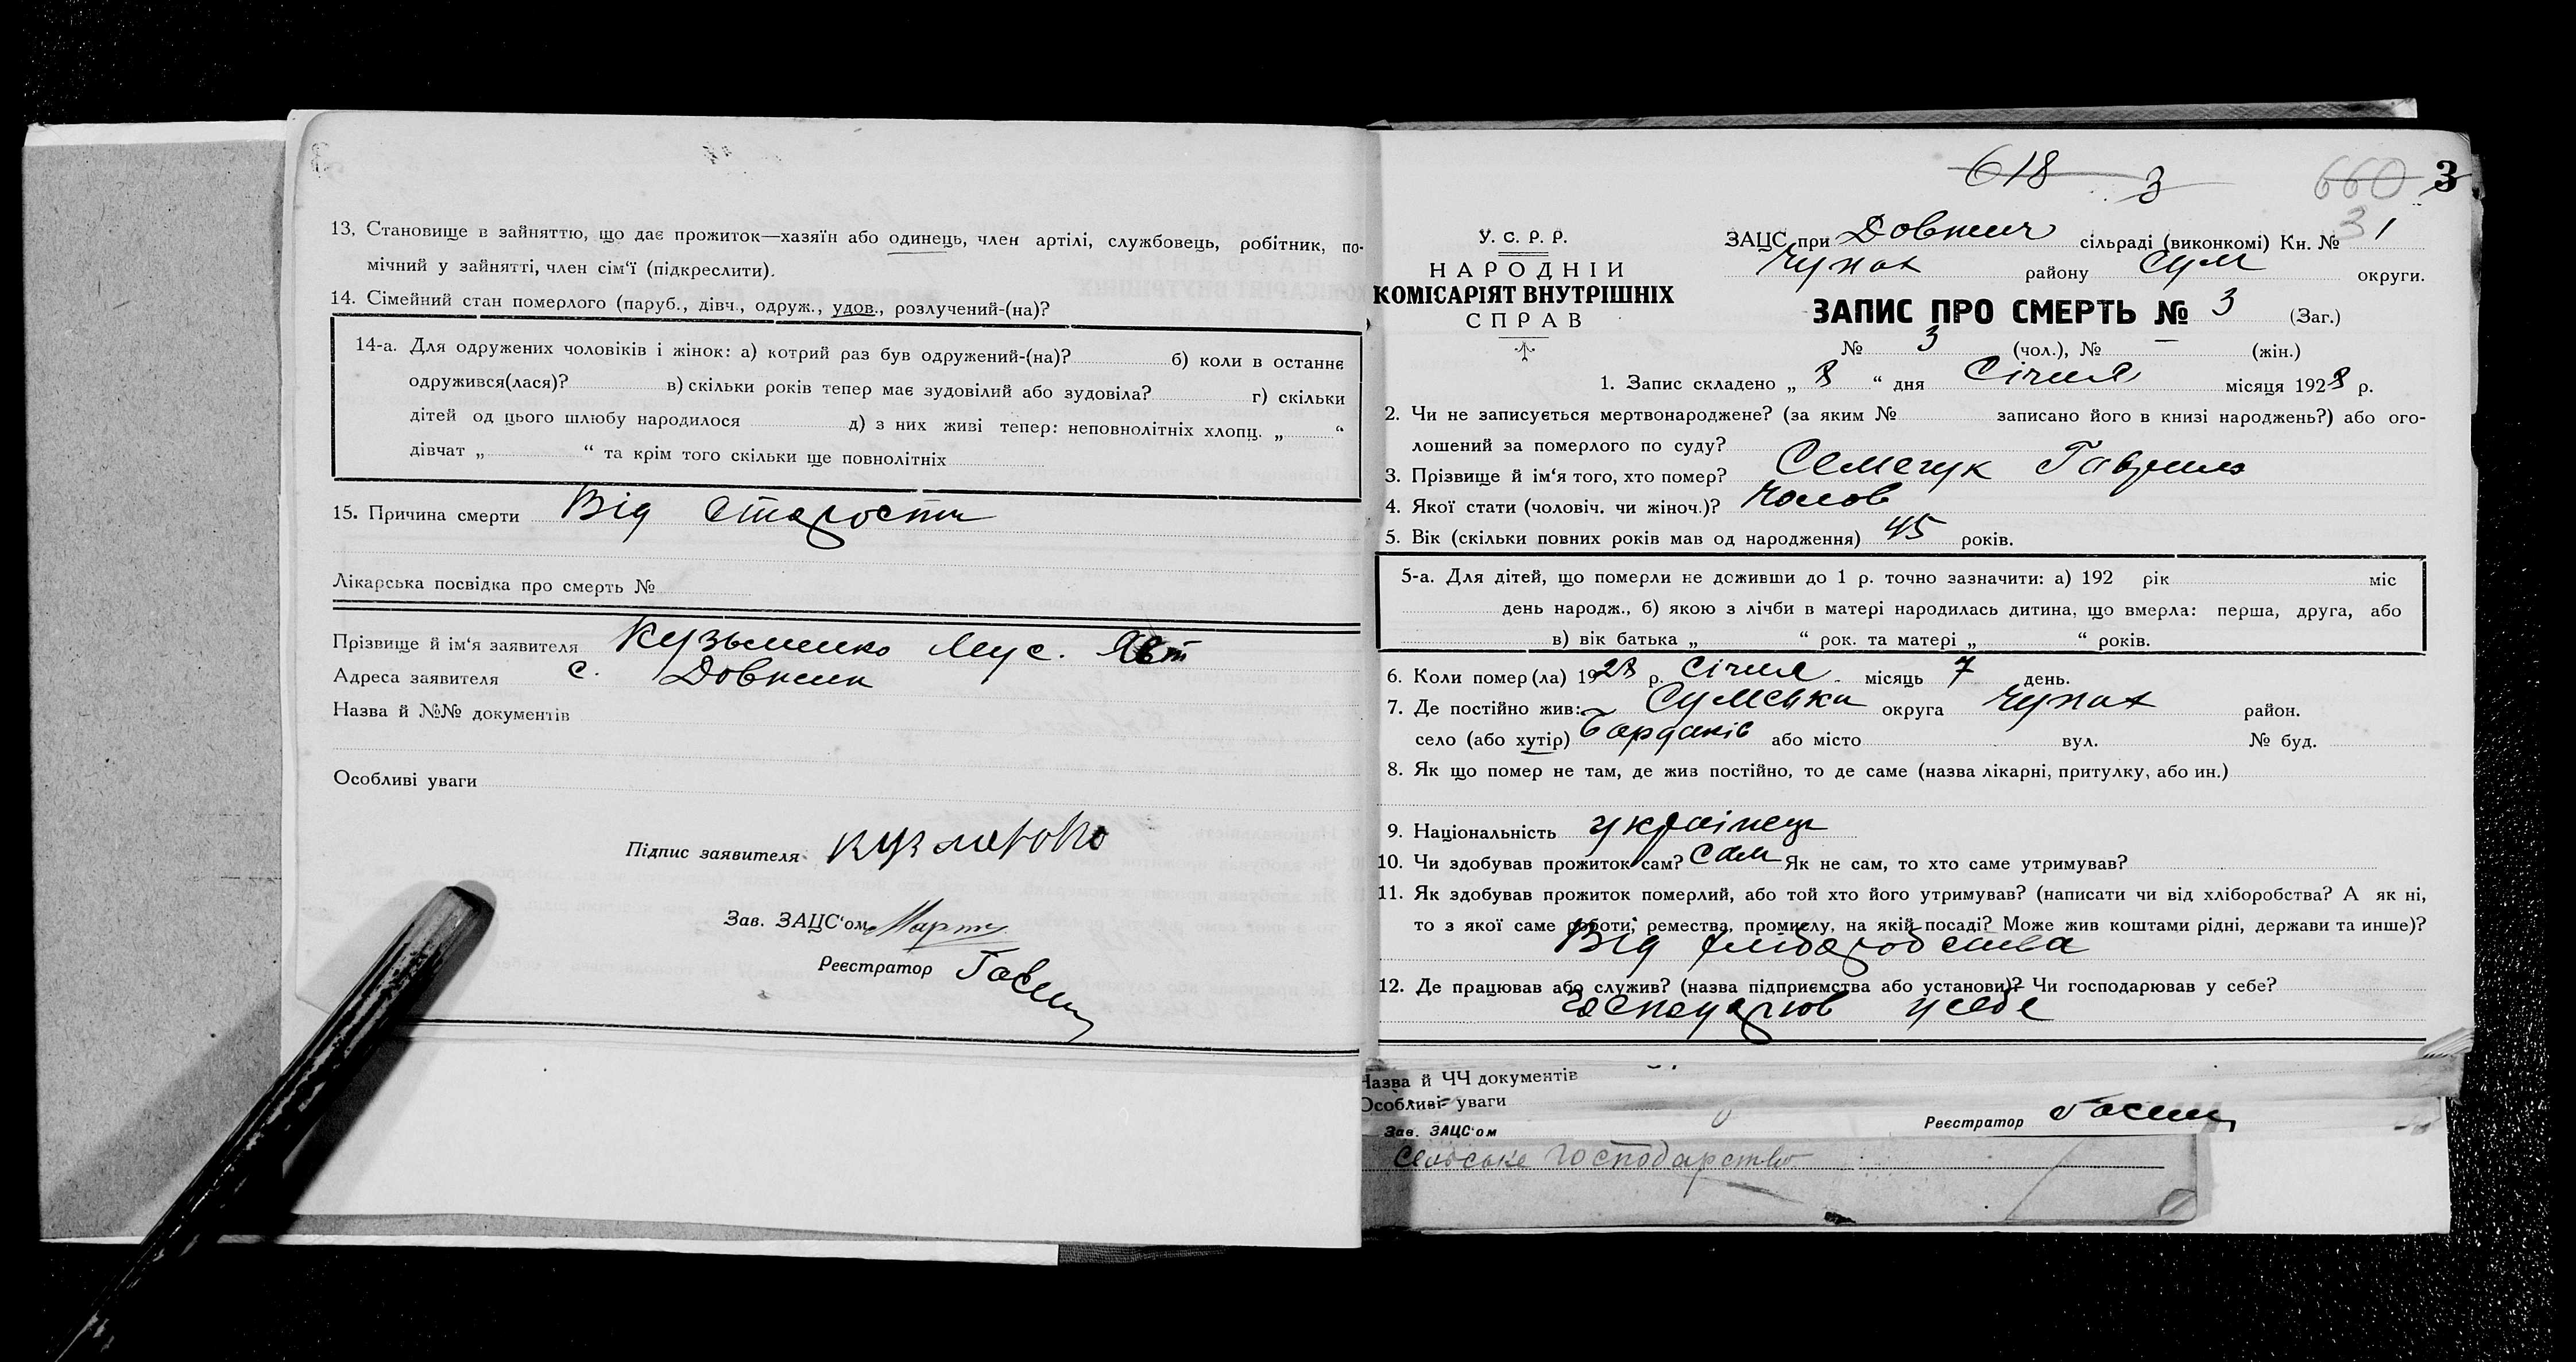 13. Становище в зайняттю, що дає прожиток—хазяїн або одинець, член артілі, службовець, робітник, по-
мічний у зайнятті, член сім'ї (підкреслити).
14. Сімейний стан померлого (паруб., дівч., одруж., удов., розлучений-(на)?
14-а. Для одружених чоловіків і жінок: а) котрий раз був одружений-(на)? б) коли в останнє
одружився(лася)? в) скільки років тепер має зудовілий або зудовіла? г) скільки
дітей од цього шлюбу народилося д) з них живі тепер: неповнолітніх хлопц. „ “
дівчат „ “ та крім того скільки ще повнолітніх
15. Причина смерти Від старости
Лікарська посвідка про смерть №
Прізвище й ім'я заявителя Кузьменко Мус.
Адреса заявителя с. Довжик
Назва й №№ документів
Особливі уваги
Підпис заявителя
Зав. ЗАЦС'ом
Реєстратор
618 3 660 3
31
У. С. Р. Р.
НАРОДНІЙ
КОМІСАРІЯТ ВНУТРІШНІХ
СПРАВ
ЗАЦС при Довжич сільраді (виконкомі) Кн. № 1
Чупах району Сум округи.
ЗАПИС ПРО СМЕРТЬ № 3 (Заг.)
№ 3 (чол.), № — (жін.)
1. Запис складено „ 8 “ дня Січня місяця 1928 р.
2. Чи не записується мертвонароджене? (за яким № записано його в книзі народжень?) або ого-
лошений за померлого по суду?
3. Прізвище й ім'я того, хто помер? Семегук Гаврило
4. Якої стати (чоловіч. чи жіноч.)? Чолов
5. Вік (скільки повних років мав од народження) 45 років.
5-а. Для дітей, що померли не доживши до 1 р. точно зазначити: а) 192 рік міс
день народж., б) якою з лічби в матері народилась дитина, що вмерла: перша, друга, або
в) вік батька „ “ рок. та матері „ “ років.
6. Коли помер(ла) 1928 р. Січня місяць 7 день.
7. Де постійно жив: Сумська округа Чупах район.
село (або хутір) Бардаків або місто вул. № буд.
8. Як що помер не там, де жив постійно, то де саме (назва лікарні, притулку, або ин.)
9. Національність українець
10. Чи здобував прожиток сам? Сам Як не сам, то хто саме утримував?
11. Як здобував прожиток померлий, або той хто його утримував? (написати чи від хліборобства? А як ні,
то з якої саме роботи, ремества, промислу, на якій посаді? Може жив коштами рідні, держави та инше)?
Від хліборобства
12. Де працював або служив? (назва підприємства або установи)? Чи господарював у себе?
Господарюв усебе
Назва й ЧЧ документів
Особливі уваги
Зав. ЗАЦС'ом Реєстратор
Сельське господарство